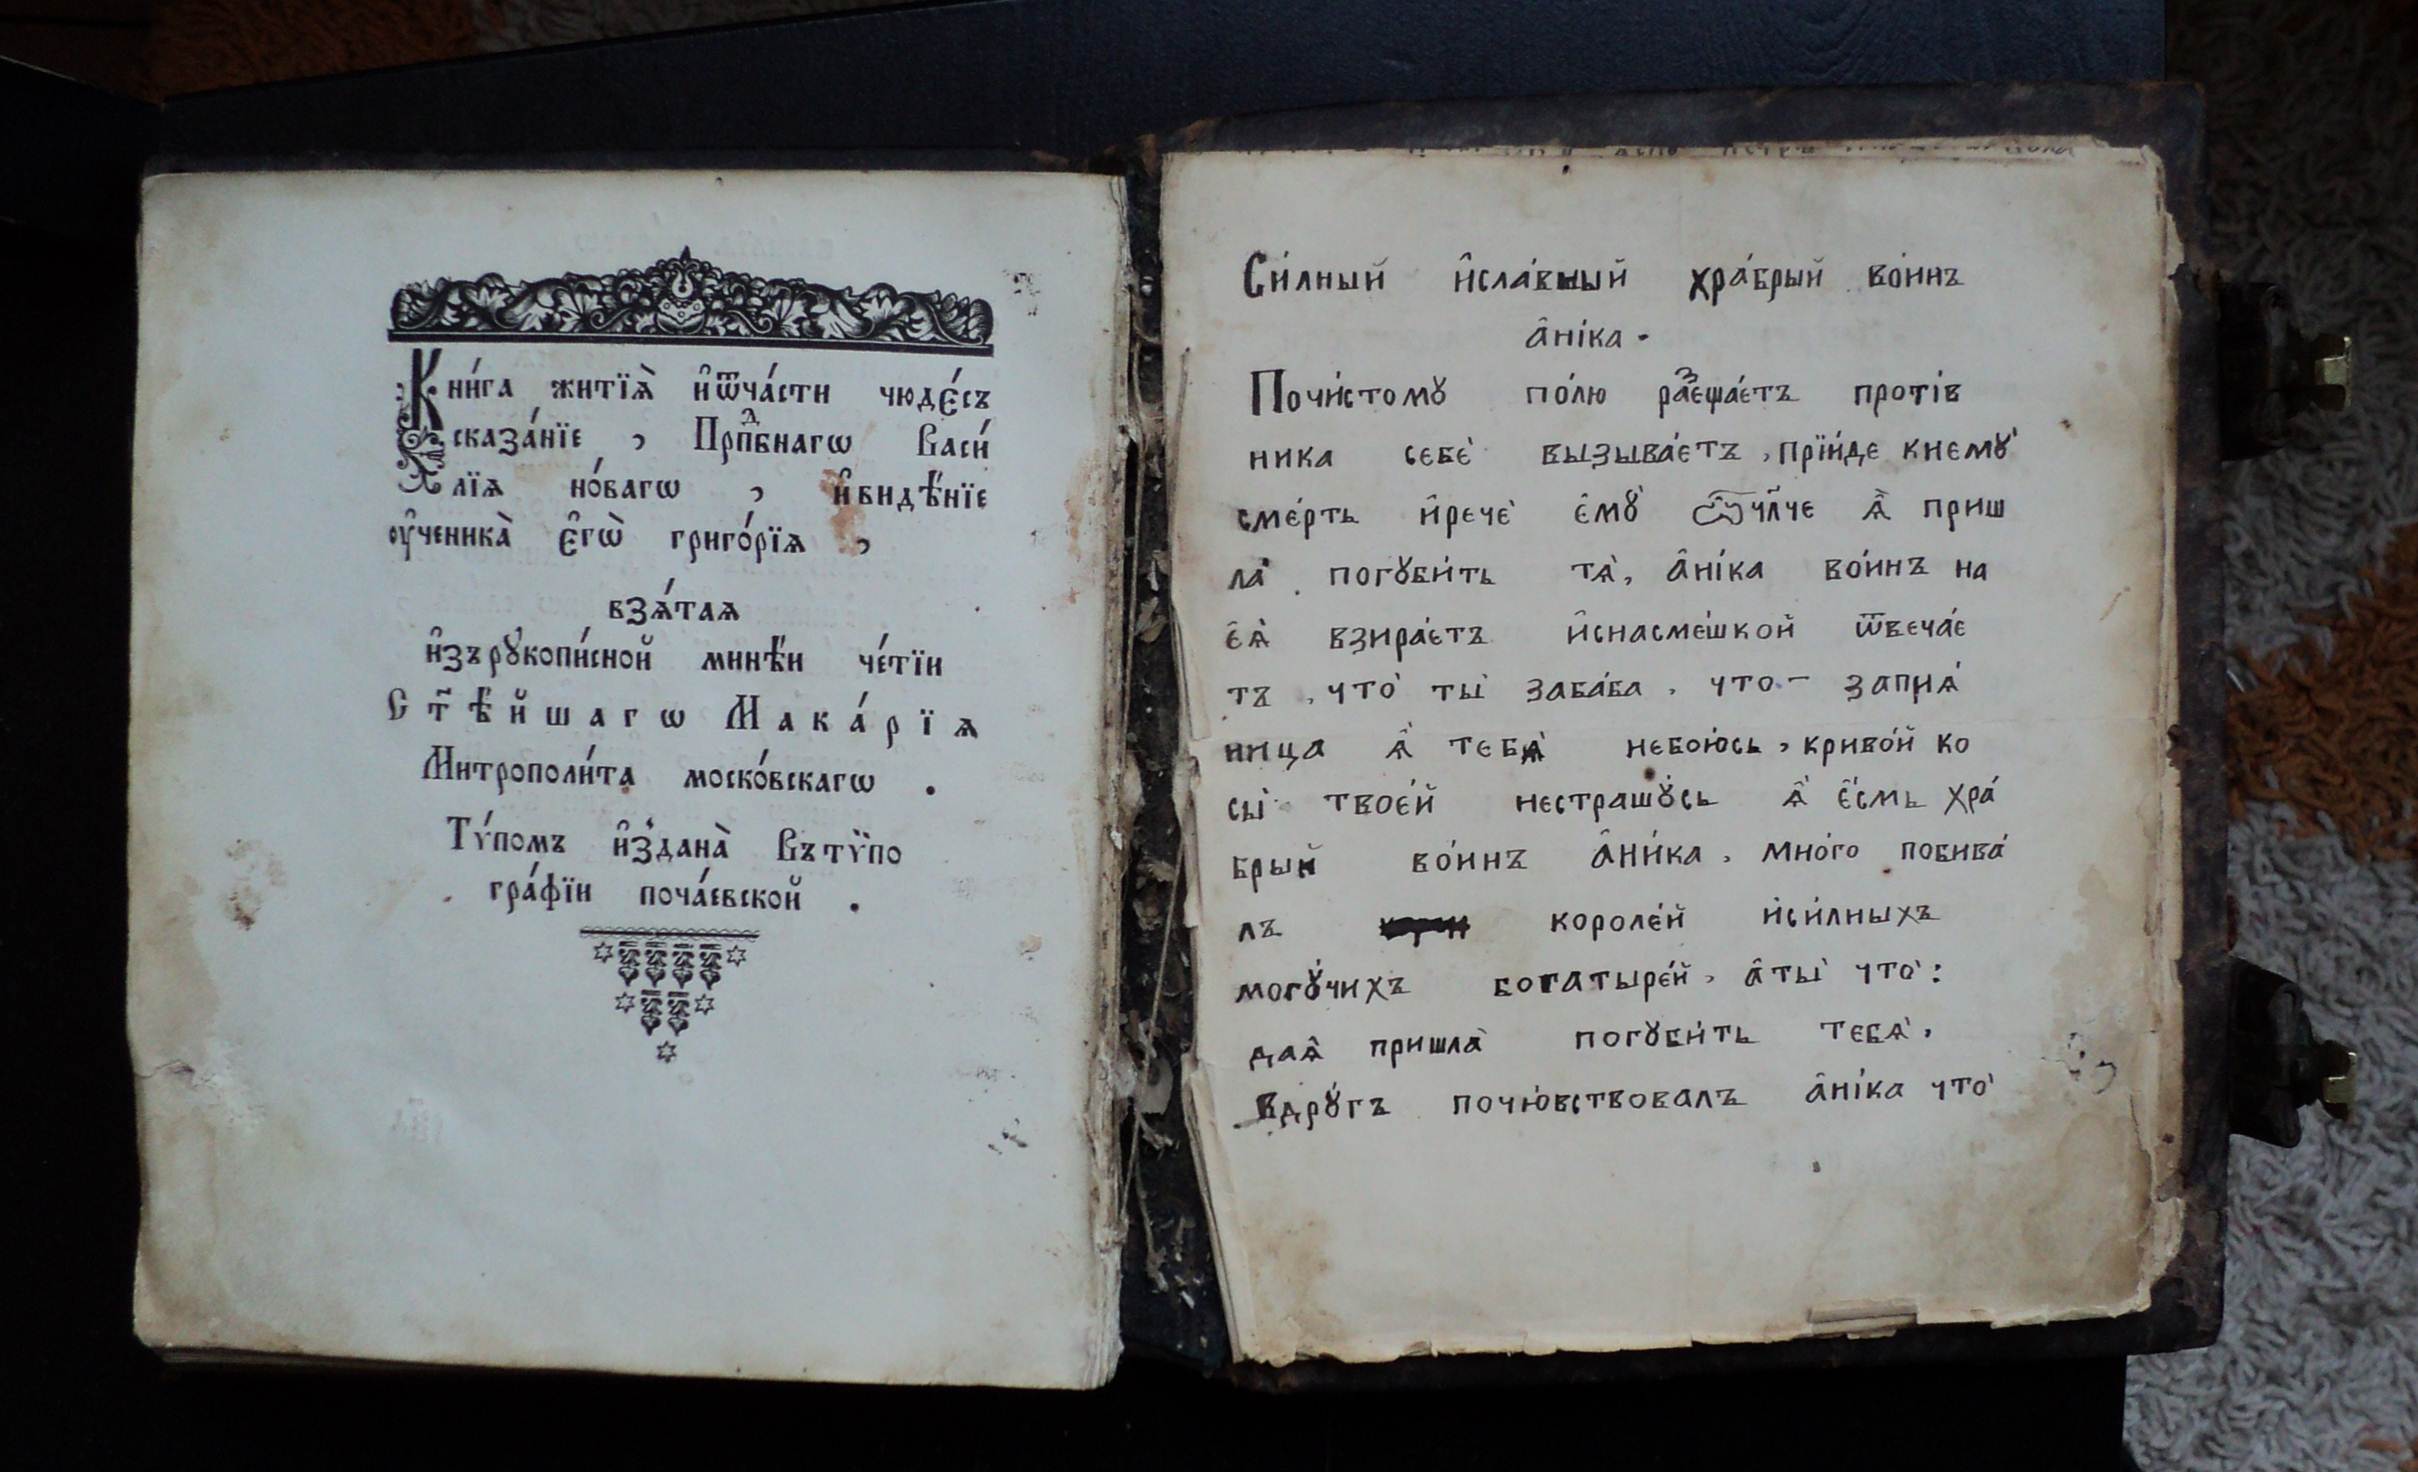 Кни́га житїѧ̀ и҆ѿча́сти чюде́съ
сказа́нїе , Прпⷣбнагѡ Васи́
лїѧ но́вагѡ , и҆видѣ́нїе
оу҆ченика̀ є҆гѡ̀ григо́рїѧ ,
взѧ́таѧ
и҆зърꙋкопи́сной минѣ́и че́тїи
Ст҃ѣ́йшагѡ Мака́рїѧ
Митрополи́та моско́вскагѡ .
Тѵ́помъ и҆здана̀ Вътѷпо
гра́фїи поча́евской .
Си́лный и҆сла́вный хра́брый во́инъ
а҆ні́ка .
Почи́стомꙋ по́лю раⷥеѣжа́етъ проті́в
ника себѐ вызыва́етъ , прїи́де кнемꙋ̀
сме́рть и҆речѐ є҆мꙋ̀ ѽчл҃че ѧ҆̀ приш
ла̀ погꙋби́ть тѧ̀ , а҆ні́ка во́инъ на
є҆ѧ̀ взира́етъ и҆снасме́шкой ѿвеча́е
тъ , что̀ ты̀ заба́ба , что - запиѧ́
ница ѧ҆̀ тебѧ̀ небою́сь , криво́й ко
сы̀ твое́й нестрашꙋ́сь ѧ҆̀ є҆́смь хра́
брый во́инъ а҆ни́ка , мно́го побива́
лъ короле́й и҆си́лныхъ
могꙋ́чихъ богатыре́й , а҆ты̀ что̀ :
даѧ҆̀ пришла̀ погꙋби́ть тебѧ̀ ,
Вдрꙋ́гъ почю́вствовалъ а҆ні́ка что̀